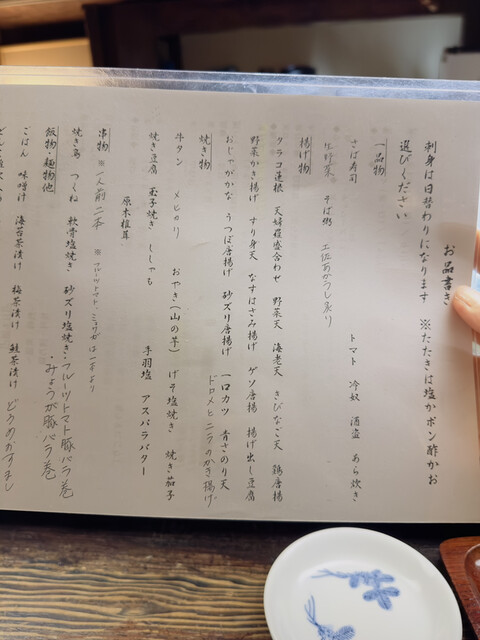 お品書き
刺身は日替わりになります ※たたきは塩かポン酢かお
選びください
一品物
さば寿司 トマト 冷奴 酒盗 あら炊き
生野菜 そば粥 土佐あかうし炙り
揚げ物
タラコ蓮根 天婦羅盛合わせ 野菜天 海老天 きびなご天 鶏唐揚
野菜かき揚げ すり身天 なすはさみ揚げ ゲソ唐揚 揚げ出し豆腐
おじゃがかな うつぼ唐揚げ 砂ズリ唐揚げ 一口カツ 青さのり天
ドロメとニラのかき揚げ
焼き物
牛タン メヒカリ おやき(山の芋) げそ塩焼き 焼き茄子
焼き豆腐 玉子焼き ししゃも 手羽塩 アスパラバター
原木椎茸
串物 ※一人前二本 ※フルーツトマト、ミョウガは一本より
焼き鳥 つくね 軟骨塩焼き 砂ズリ塩焼き・フルーツトマト豚バラ巻
・みょうが豚バラ巻
飯物・麺物他
ごはん 味噌汁 海苔茶漬け 梅茶漬け 鮭茶漬け